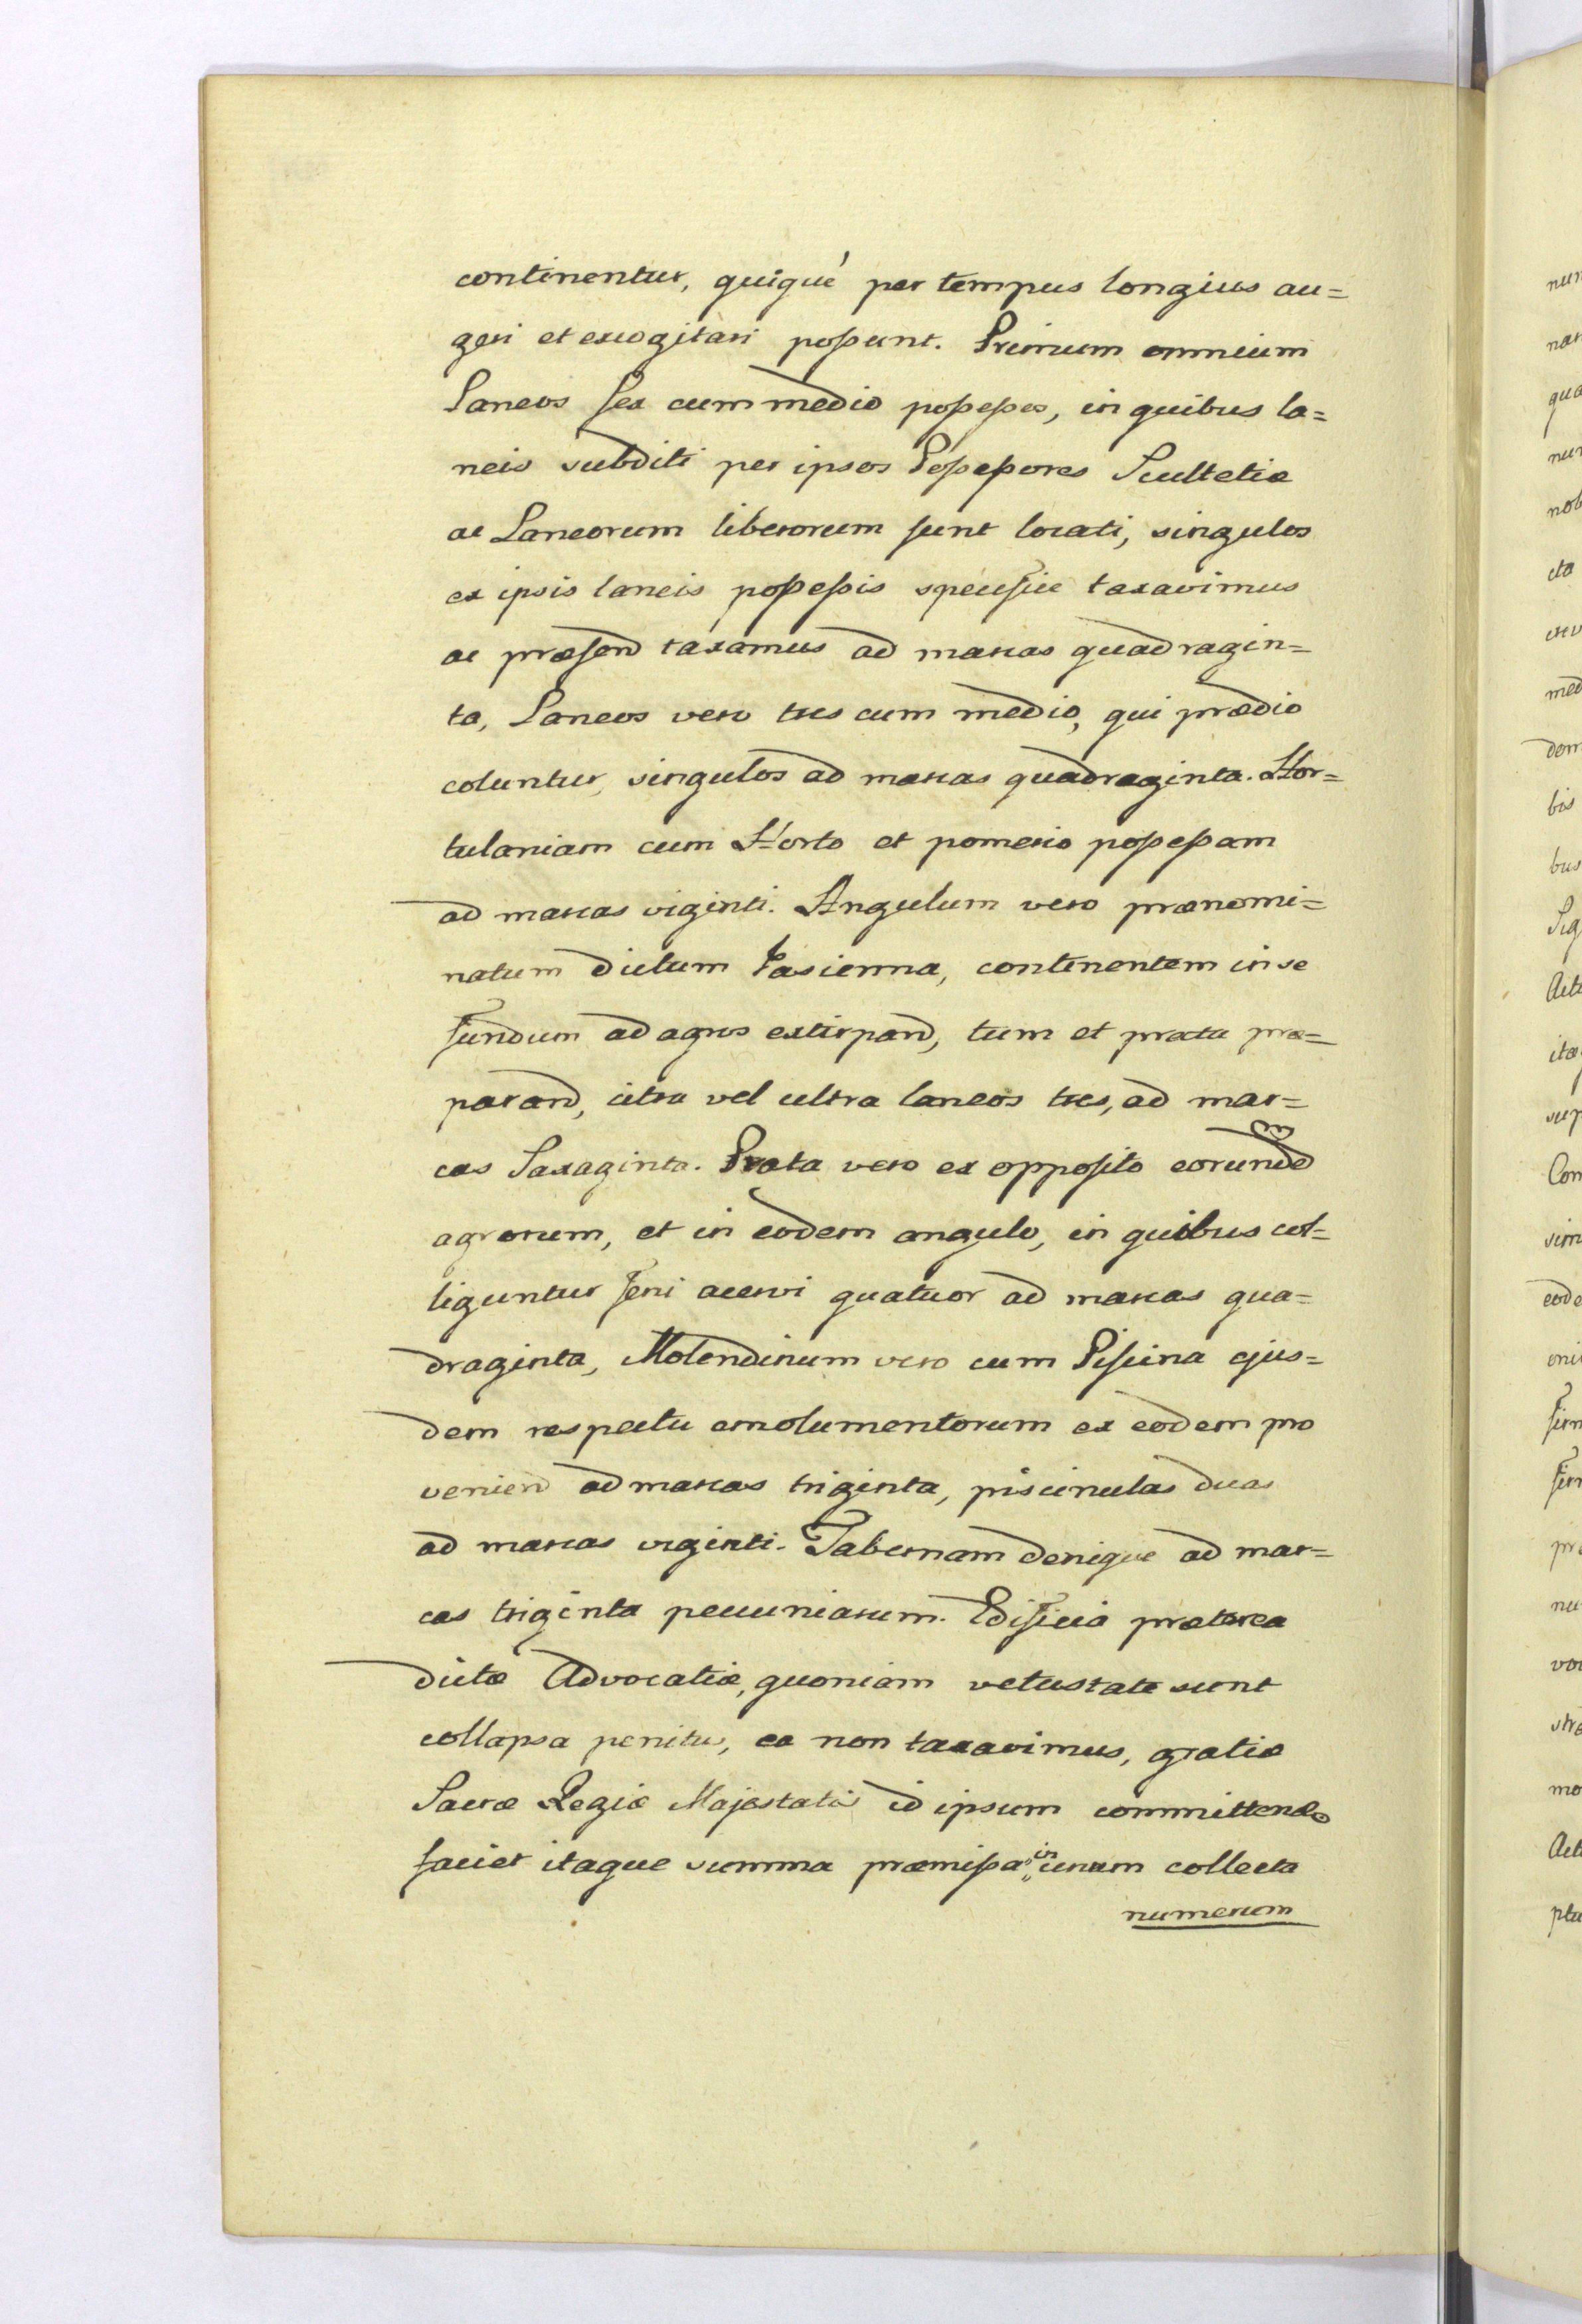 continentur, quiquè per tempus longius au=
geri et excogitari possunt. Primum omnium
Laneos sex cum medio possessos, in quibus la=
neis subditi per ipsos Possessores Scultetiæ
ac Laneorum liberorum sunt locati, singulos
ex ipsis laneis possessis specifice taxavimus
ac præsend taxamus ad marcas quadragin=
ta, Laneos vero tres cum medio, qui prædio
coluntur, singulos ad marcas quadraginta. Hor=
tulaniam cum Horto et pomerio possessam
ad marcas viginti. Angulum vero prænomi=
natum dictum Jasienna, continentem in se
fundum ad agros extirpand, tum et prata præ=
parand, citra vel ultra laneos tres, ad mar=
cas Saxaginta. Prata vero ex opposito eorund
agrorum, et in eodem angulo, in quibus col=
liguntur feni acervi quatuor ad marcas qua=
draginta, Molendinum vero cum Piscina ejus=
dem respectu emolumentorum ex eodem pro
veniend ad marcas triginta, piscinulas duas
ad marcas viginti. Tabernam denique ad mar=
cas triginta pecuniarum. Edificia præterea
dictæ Advocatiæ, quoniam vetustate sunt
collapsa penitus, ea non taxavimus, gratiæ
Sacræ Regiæ Majestatis id ipsum committendo
faciet itaque summa præmissa in unum collecta
numerum
nun
nar
qua
nun
nob
cta
med
dom
bis
bus
Sig
Acti
ita
sup
Con
sim
eode
firm
pro
vo
stra
mo
Act
ptu